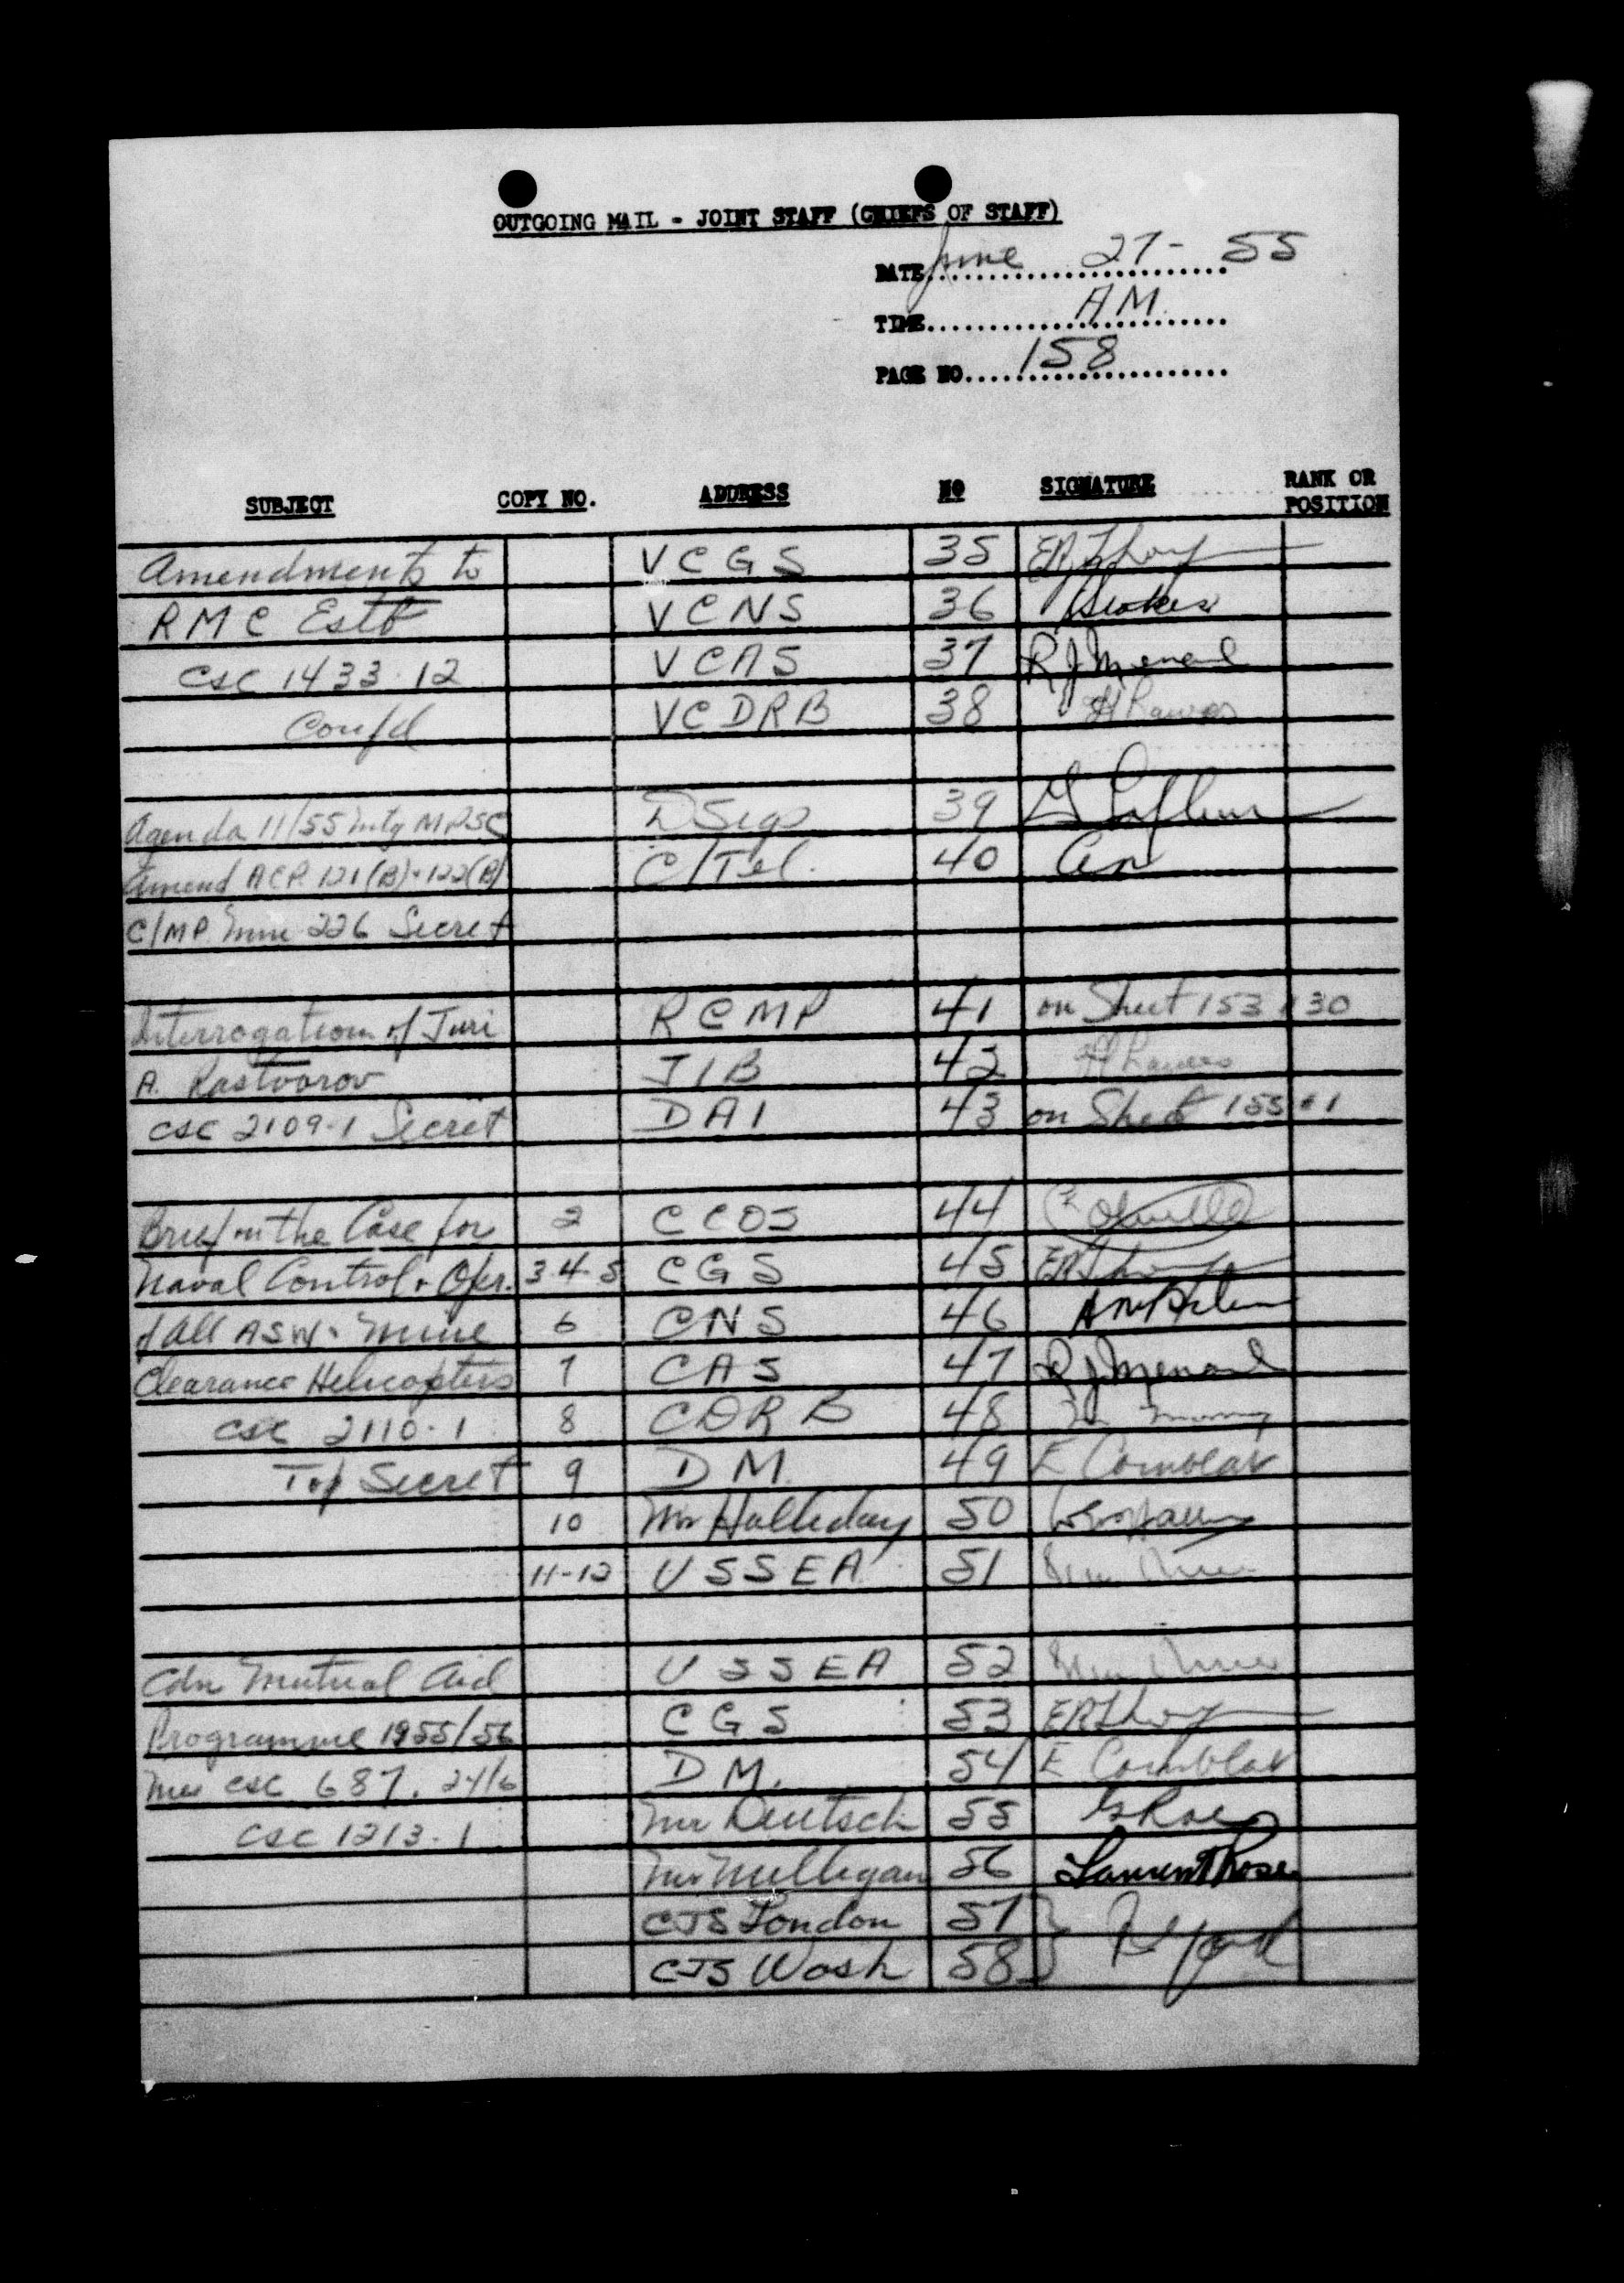 OUTGOING MAIL - JOINT STAFF (CHIEFS OF STAFF)
DATE June 27-55
TIME A.M.
PAGE NO. 158
SUBJECT COPY NO. ADDRESS NO SIGNATURE RANK OR POSITION
Amendments to VCGS 35
RMC Estb VCNS 36 Stokes
CSC 1433-12 VCAS 37 R J Menard
Confd VCDRB 38
Agenda 11/55 Mtg MPSC DSigs 39 Lafleur
Amend ACP 121(B)+122(B) C/Tel. 40
C/MP Mm 226 Secret
Interrogation of Juri RCMP 41 on Sheet 153 #30
A. Rastvorov JIB 42
CSC 2109-1 Secret DAI 43 on Sheet 155 #1
Brief on the Case for 2 CCOS 44
Naval Control & Oper. 3-4-5 CGS 45
of all ASW & Mine 6 CNS 46
Clearance Helicopters 7 CAS 47 R J Menard
CSC 2110-1 8 CDRB 48
Top Secret 9 DM 49 E
10 Mr Halliday 50
11-12 USSEA 51
Cdn Mutual Aid USSEA 52
Programme 1955/56 CGS 53
CSC 687. 24/6 DM. 54 E
CSC 1213-1 Mr Deutsch 55
Mr Milligan 56 Rose
CJS London 57
CJS Wash 58